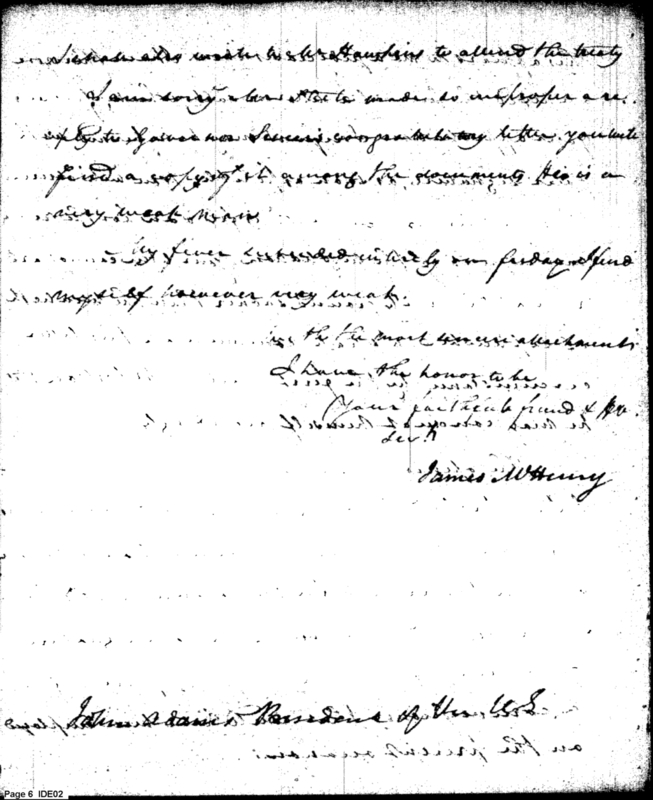 I shall also write to Mr Hawkins to attend the treaty
I am sorry Mr Steele made so improper a use
of Governor Sevier's my letter. you will
find a copy of it among the documents. He is a
very weak man.
My fever intirely on friday. I find
myself however very weak.
With the most sincere attachment
I have the honor to be
Your faithful friend & Hle
Servt
James McHenry
John Adams President of the U.S.
Page 6 IDE02